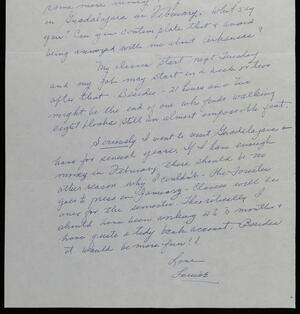 some more money
in Guadalajara in February. What say
you? Can you contemplate that & avoid
being annoyed with me about expenses?
My classes start next Tuesday
and my job may start in a week or two
after that. Besides – 21 hours on
might be the end of one who finds walking
eight blocks still an almost impossible feat.
Seriously I want to visit Guadalajara
have for several years. If I have enough
money in February there should be no
other reason why I couldn't – The
goes to press in January – Classes will be
over for the semester. Theoretically I
should have been working 4 to 5 months &
have quite a tidy bank account. Besides
it would be more fun!!
Love
Louise